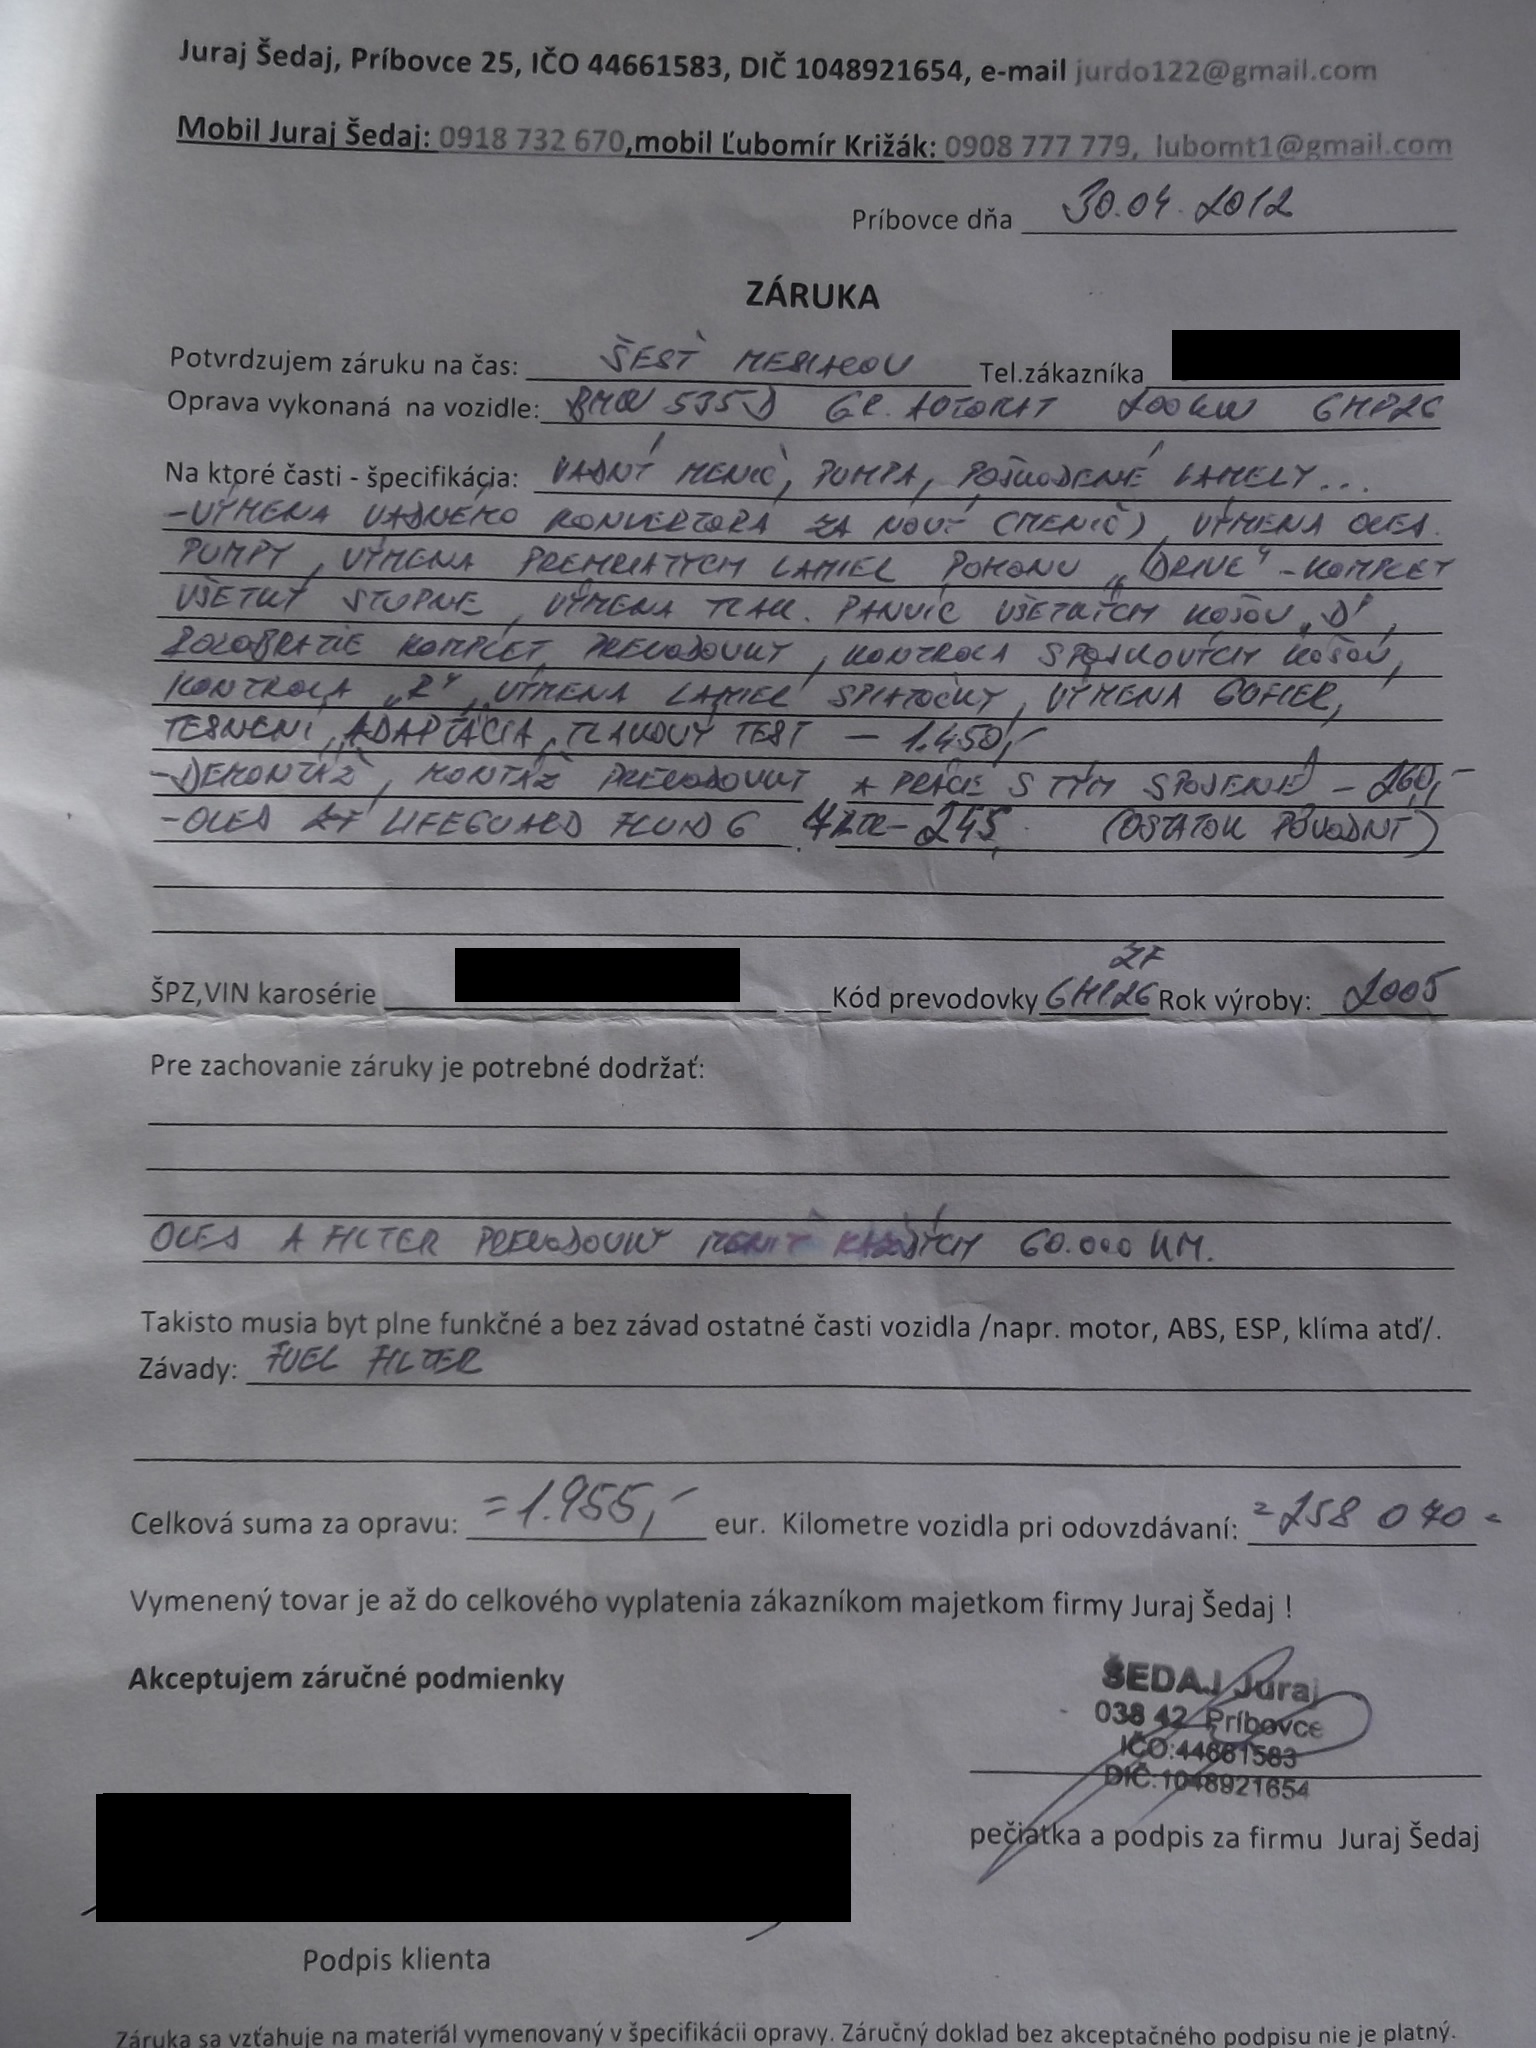 Juraj Šedaj, Príbovce 25, IČO 44661583, DIČ 1048921654, e-mail jurdo122@gmail.com
Mobil Juraj Šedaj: 0918 732 670,mobil Ľubomír Križák: 0908 777 779, lubomt1@gmail.com
Príbovce dňa 30.04.2012
ZÁRUKA
Potvrdzujem záruku na čas: ŠESŤ MESIACOV Tel.zákazníka
Oprava vykonaná na vozidle: BMW 535D 6R. AUTOMAT 200KW 6HP26
Na ktoré časti - špecifikácia: VADNÝ MENIČ, PUMPA, POŠKODENÉ LAMELY...
-VÝMENA VADNÉHO KONVERTORA ZA NOVÝ (MENIČ), VÝMENA OLEJ.
PUMPY, VÝMENA LAMIEL POHONU „DRIVE" -KOMPLET
VŠETKY STUPNE, VÝMENA TLAK. PANVÍC VŠETKÝCH KOŠOV „D",
ROZOBRATIE KOMPLET PREVODOVKY, KONTROLA SPOJKOVÝCH KOŠOV,
KONTROLA „R", VÝMENA LAMIEL SPIATOČKY, VÝMENA GUFIER,
TESNENÍ, ADAPTÁCIA, TLAKOVÝ TEST - 1.450,-
-DEMONTÁŽ, MONTÁŽ PREVODOVKY A PRÁCE S TÝM SPOJENÉ - 260,-
-OLEJ ZF LIFEGUARD FLUID 6 7LTR- 245,- (OSTATOK PÔVODNÝ)
ŠPZ,VIN karosérie Kód prevodovky ZF 6HP26 Rok výroby: 2005
Pre zachovanie záruky je potrebné dodržať:
OLEJ A FILTER PREVODOVKY MENIŤ KAŽDÝCH 60.000 KM.
Takisto musia byt plne funkčné a bez závad ostatné časti vozidla /napr. motor, ABS, ESP, klíma atď/.
Závady: FUEL FILTER
Celková suma za opravu: =1.955,- eur. Kilometre vozidla pri odovzdávaní: =258 070=
Vymenený tovar je až do celkového vyplatenia zákazníkom majetkom firmy Juraj Šedaj !
Akceptujem záručné podmienky
ŠEDAJ Juraj
038 42 Príbovce
IČO:44661583
DIČ:1048921654
pečiatka a podpis za firmu Juraj Šedaj
Podpis klienta
Záruka sa vzťahuje na materiál vymenovaný v špecifikácii opravy. Záručný doklad bez akceptačného podpisu nie je platný.